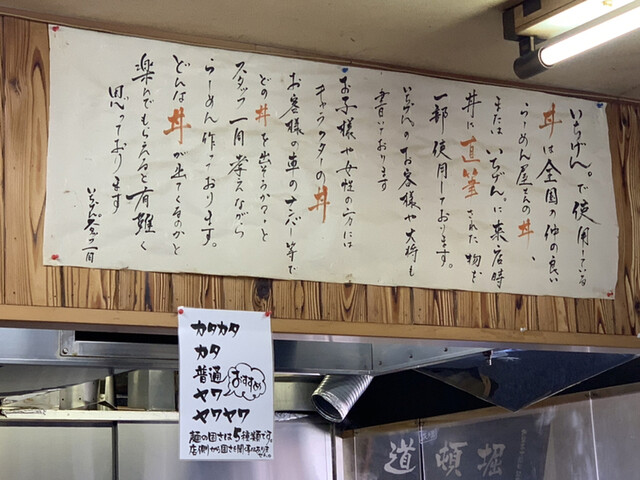 いちげん。で使用している
丼は全国の仲の良い
らーめん屋さんの丼、
または いちげん。に来店時
丼に直筆された物を
一部使用しております。
いちげん。のお客様や大将も
書いております
お子様や女性の方には
キャラクターの丼
お客様の車のナンバー等で
どの丼を出そうか？と
スタッフ一同考えながら
らーめん作っております。
どんな丼が出てくるのかと
楽しんでもらえると有難く
思っております
いちげん。スタッフ一同
カタカタ
カタ
普通
ヤワ
ヤワヤワ
おすすめ
麺の固さは5種類です。
店側から固さを聞く事はありません。
道頓堀